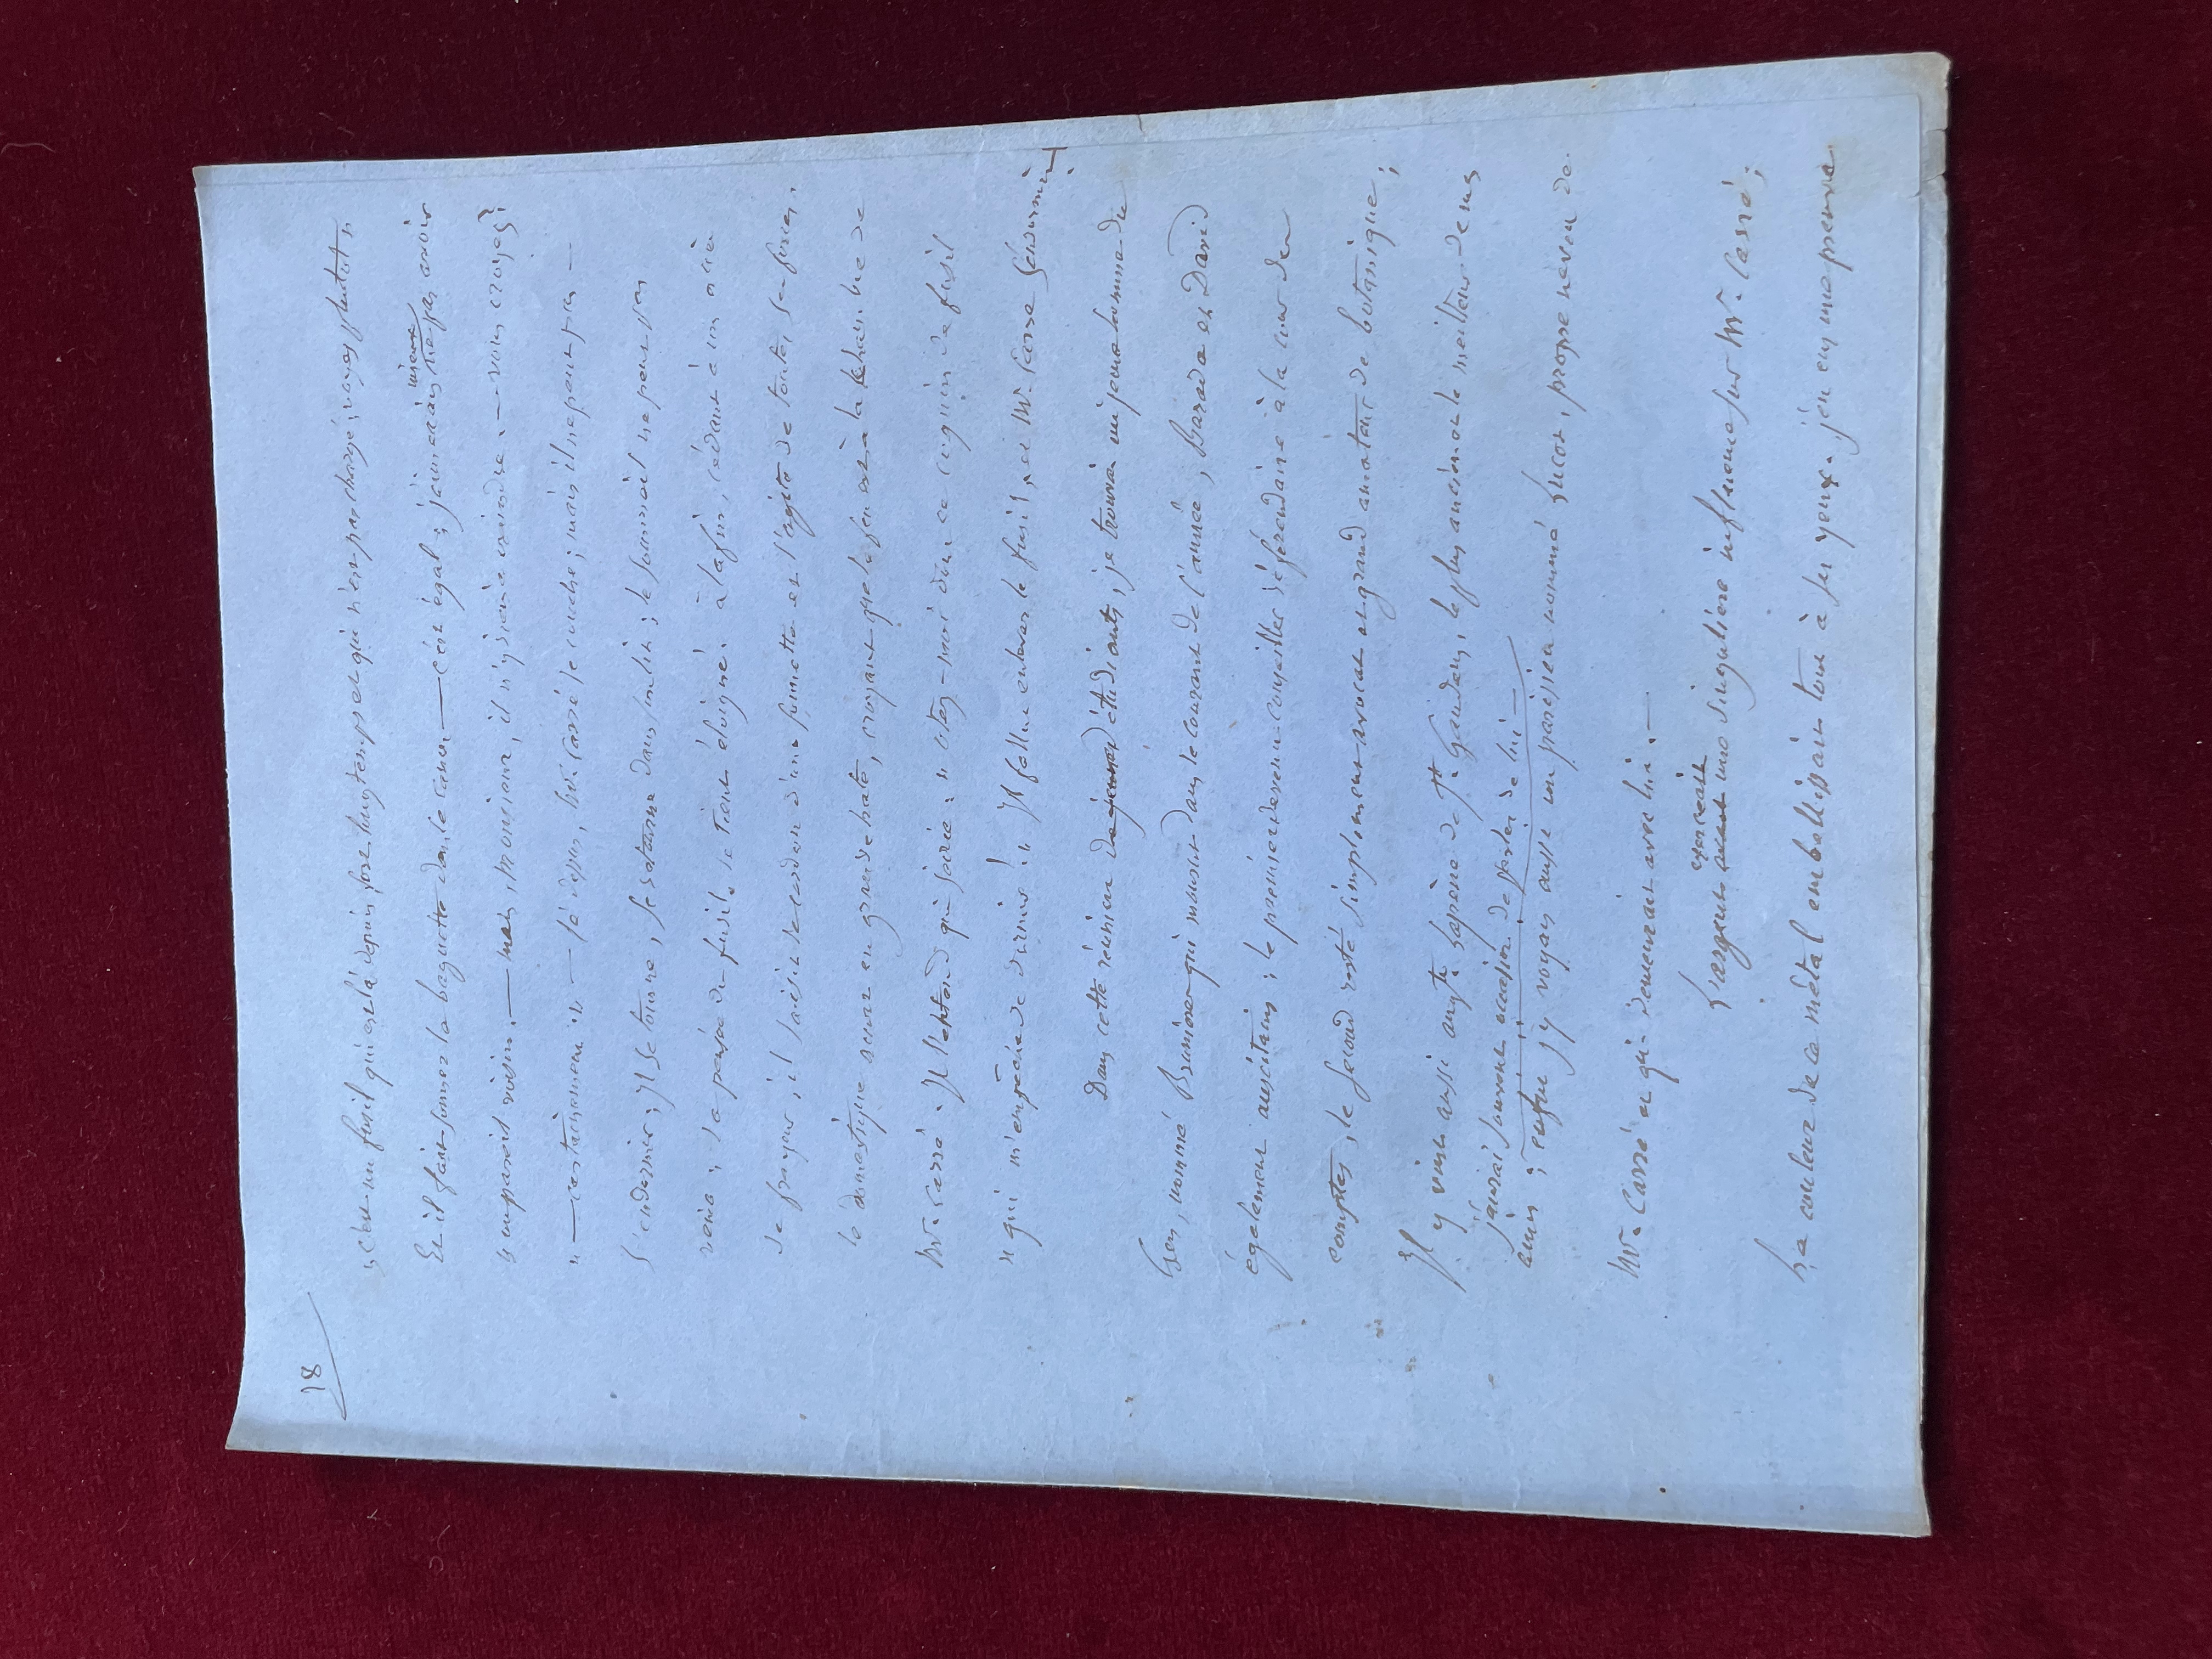 18
" c'est un fusil qui est là depuis fort longtemps et qui n'est pas chargé ; voyez plutôt "
Et il fait sonner la baguette dans le canon — c'est égal ; j'aimerais mieux ne pas avoir
" un pareil voisin. — mais, monsieur, il n'y a rien à craindre. — vous croyez ?
" — certainement " — là dessus, Mr. Carré se couche ; mais il ne peut pas
s'endormir ; Il se tourne, se retourne dans son lit ; le sommeil ne peut pas
venir ; la pensée du fusil le tient éloigné. à la fin, cédant à un accès
de frayeur, il saisit le cordon d'une sonnette et l'agite de toutes ses forces.
le domestique accourt en grande hâte, croyant que le feu est à la chambre de
Mr. Carré. Il l'entend qui s'écrie : " ôtez-moi donc ce coquin de fusil
" qui m'empêche de dormir ! " Il fallut enlever le fusil, et Mr. Carré s'endormit.
Dans cette réunion d'étudiants, je trouvai un jeune homme du
Gers, nommé Brumiore qui mourut dans le courant de l'année ; Barada et David
également auscitains ; le premier devenu conseiller référendaire à la cour des
comptes, le second resté simplement avocat et grand amateur de botanique ;
Il y vint aussi auguste Lapène de St. Gaudens, le plus ancien et le meilleur de mes
j'aurai souvent occasion de parler de lui —
amis ; enfin j'y voyais aussi un parisien nommé Lucot, propre neveu de
Mr. Carré et qui demeurait avec lui. —
L'argent exerçait une singulière influence sur Mr. Carré ;
La couleur de ce métal embellissait tout à ses yeux. j'en eus une preuve